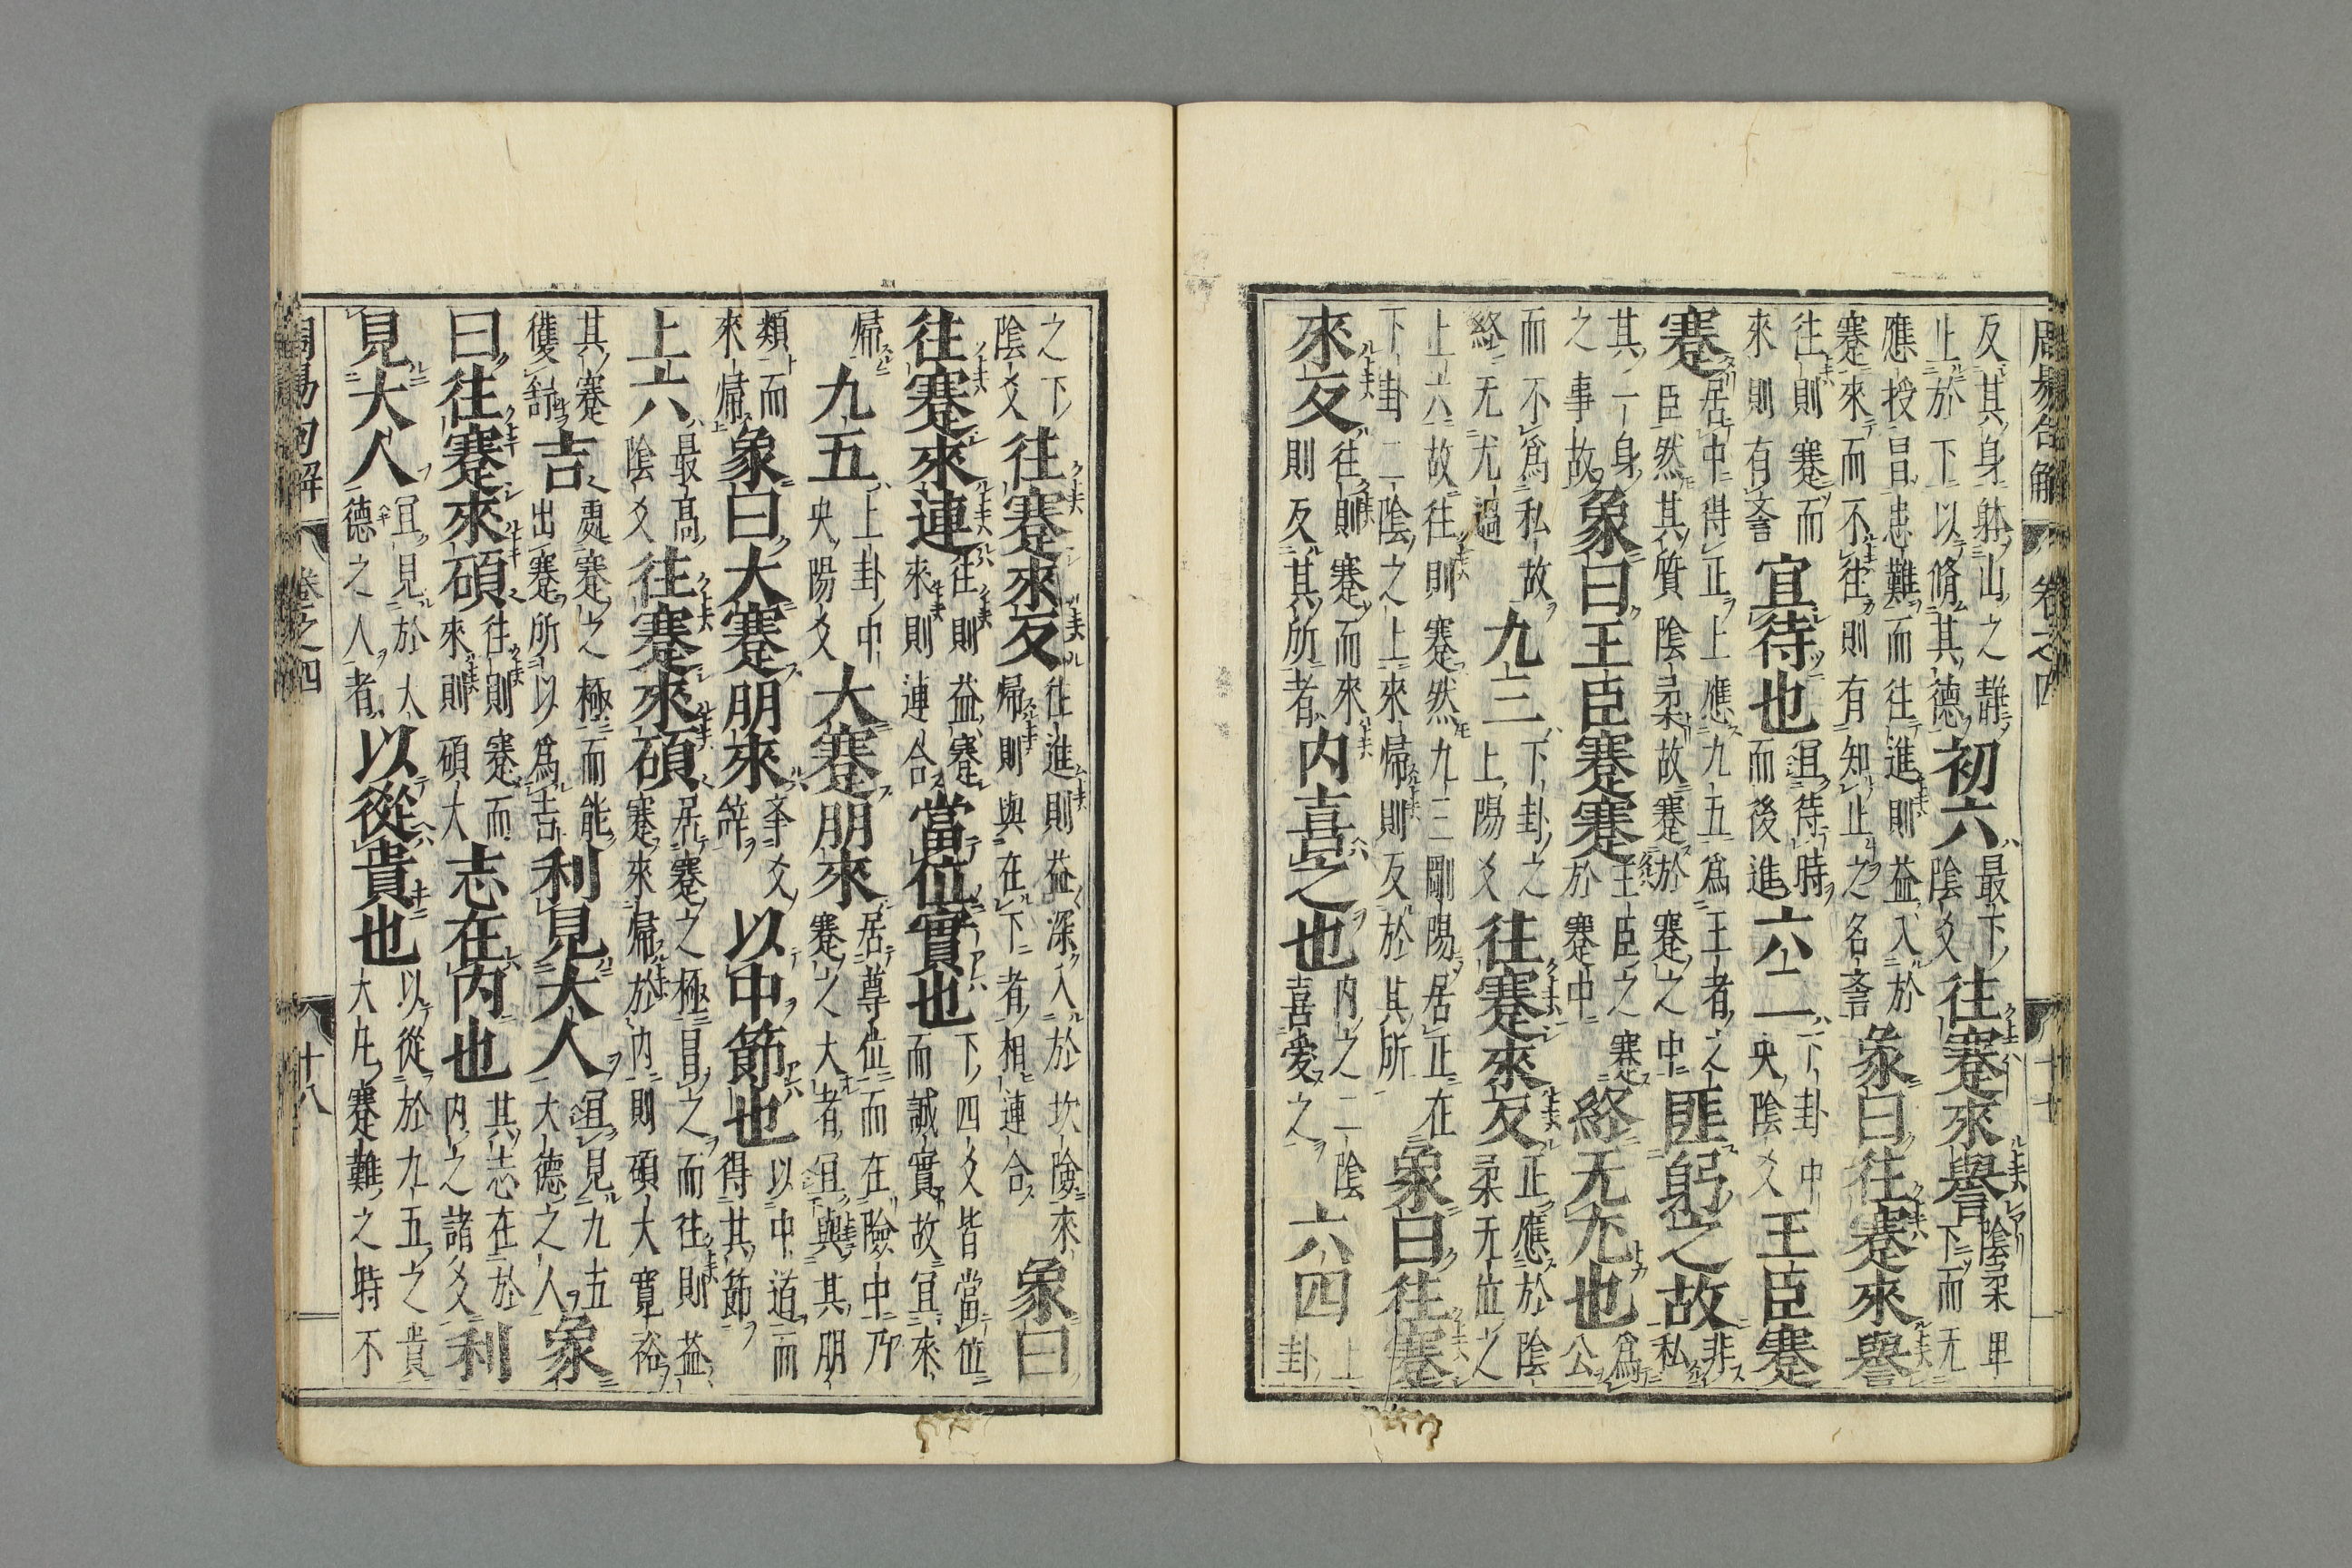 周易句解 卷之四 十七
反其身躰山之靜止於下以脩其德初六最下陰爻往蹇來譽陰柔卑下而无
應授冒患難而往進則益入於蹇來而不往則有知止之名誉象曰往蹇來譽
往則蹇而來則有誉宜待也宜待時而後進六二下卦中央陰爻王臣蹇
蹇居中得正上應九五爲王者之臣然其質陰柔故蹇於蹇之中匪躬之故非私
其一身之事故象曰王臣蹇蹇王臣之蹇於蹇中終无尤也爲公
而不爲私故終无尤過九三下卦之上陽爻往蹇來反正應於陰柔无位之
上六故往則蹇然九三剛陽居正在下卦二陰之上來歸則反於其所象曰往蹇
來反往則蹇而來則反其所者内喜之也内之二陰喜愛之六四上卦
之下陰爻往蹇來反往進則益深入於坎險來歸則與在下者相連合象曰
往蹇來連往則益蹇來則連合當位實也下四爻皆當位而誠實故宜來
歸九五上卦中央陽爻大蹇朋來居尊位而在險中乃蹇之大者宜與其朋
類而來歸象曰大蹇朋來夲爻辞以中節也以中道而得其節
上六最高陰爻往蹇來碩居蹇之極冒之而往則益蹇來歸於内則碩大寬裕
其蹇獲舒吉處蹇之極而能出蹇所以爲吉利見大人宜見九五大德之人象
曰往蹇來碩往則蹇而來則碩大志在内也其志在於内之諸爻利
見大人宜見於大德之人者以從貴也以從於九五之貴大凡蹇難之時不
周易句解 卷之四 十八